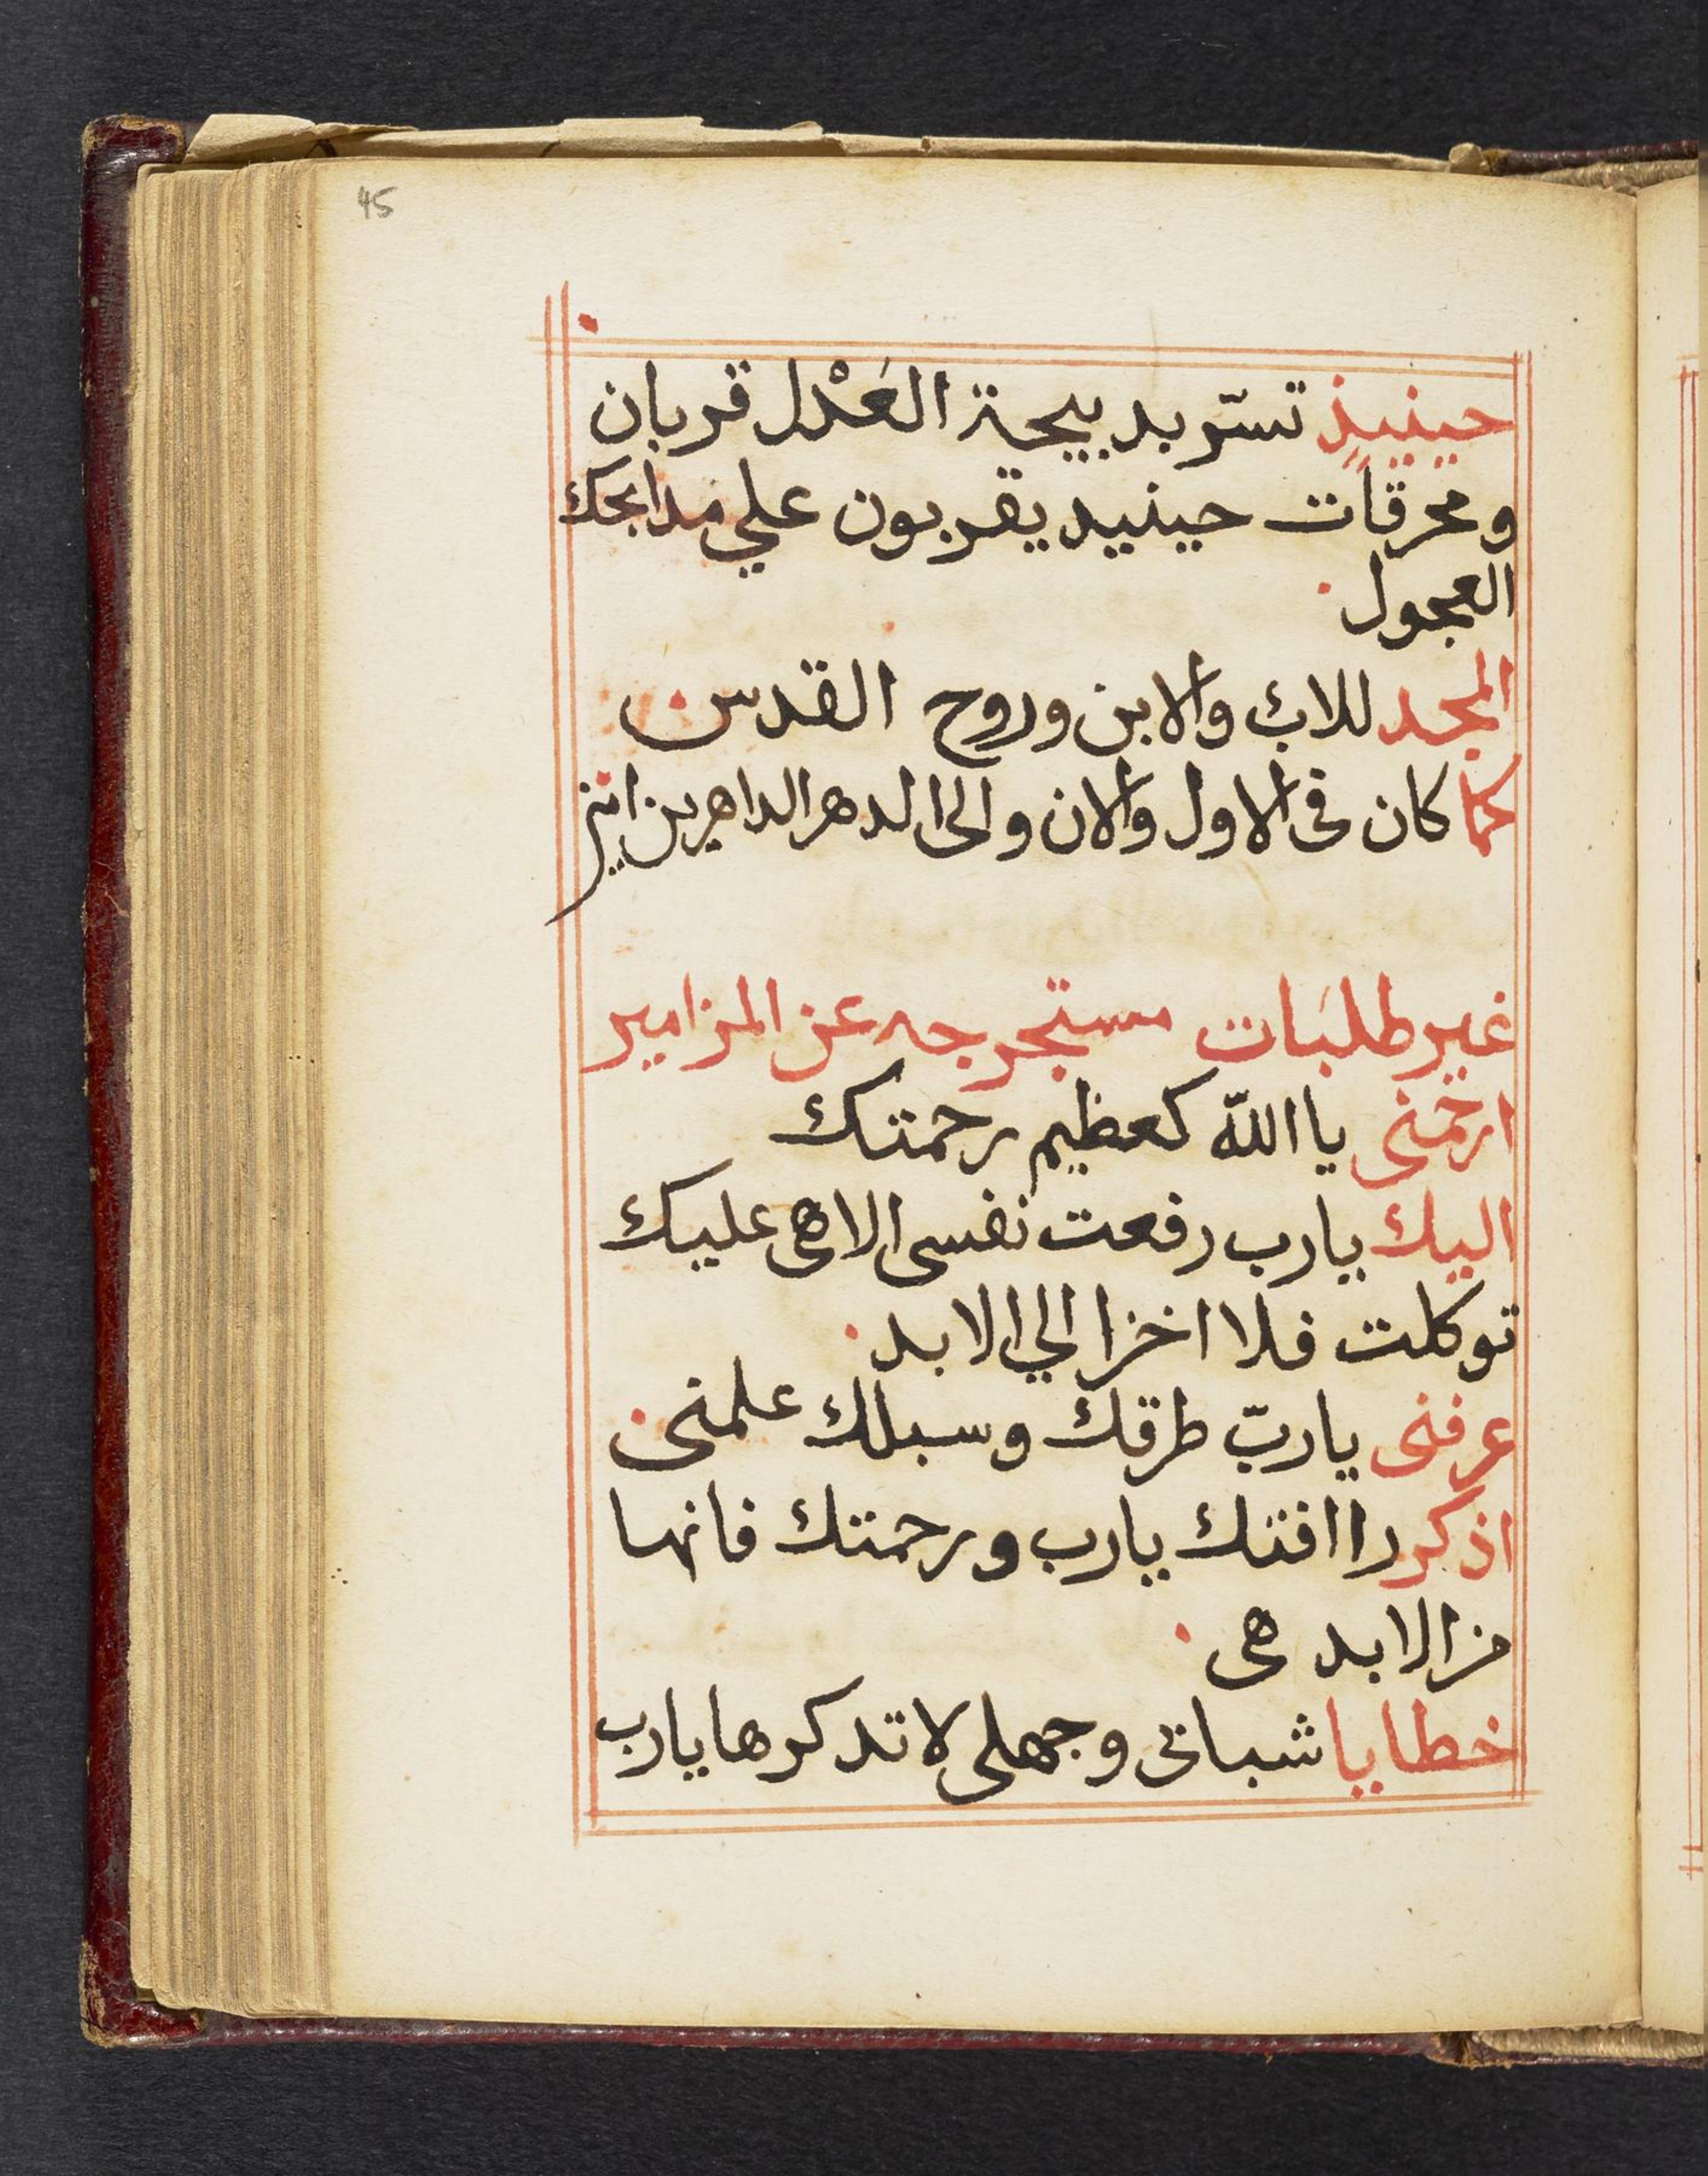 45
حينيذٍ تسّر بدبيحة العَدْل قربان
ومحرقات حينيد يقربون علي مدابحك
العجول
المجد للاب والابن وروح القدس
كما كان فى الاول والان والى الدهر الداهرين امين
غير طلبَات مستخرجه عن المزامير
ارحمنى يا اللّه كعظيم رحمتك
اليك يارب رفعت نفسى الاهى عليك
توكلت فلا اخزا الي الابد
عرفنى ياربّ طرقك وسبلك علمنى
اذكر راافتك يارب ورحمتك فانها
من الابد هى
خطايا شباتى وجهلى لا تدكرها يارب